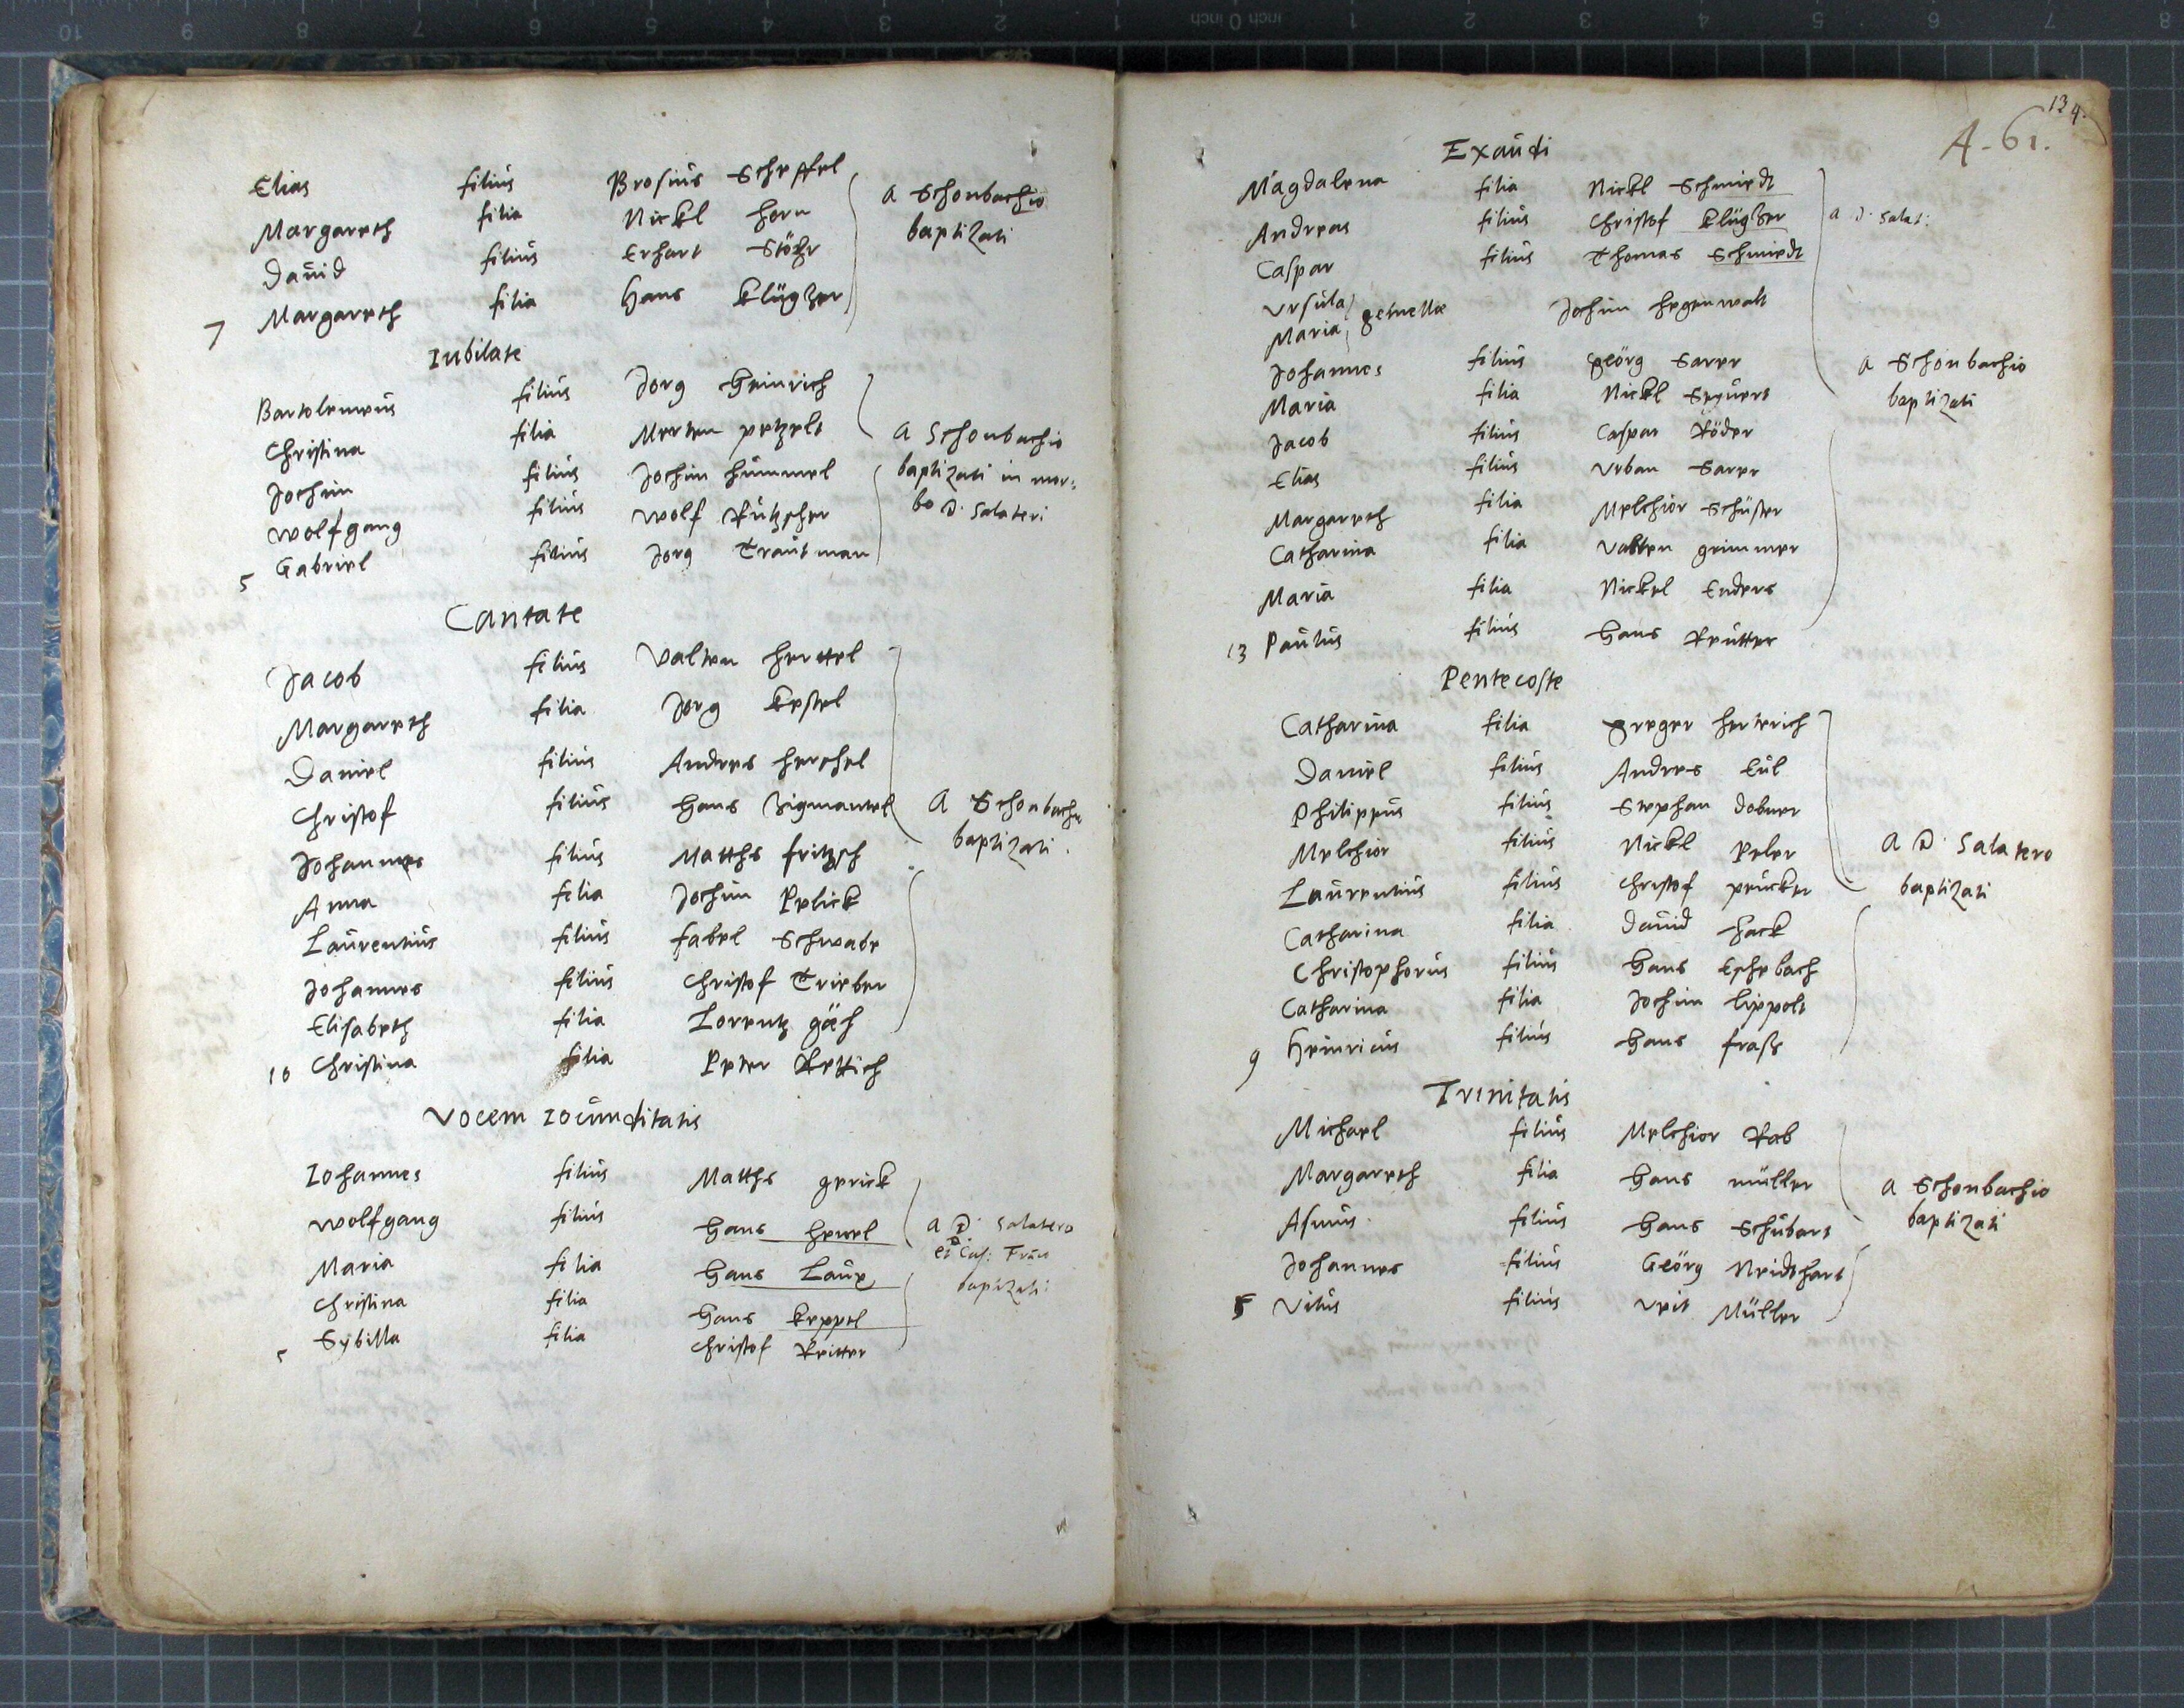 Elias filius Brosius Scheffel
Margareth filia Nickl Horn
David filius Erhart Stöhr
7 Margareth filia Hans Klügher
a Schonbachio
baptizati
Iubilate
Bartolemeus filius Jorg Heinrich
Christina filia Merten petzelt
Jochim filius Jochim Hummel
Wolfgang filius Wolf Rützscher
5 Gabriel filius Jorg Trautman
a Schonbachio
baptizati in mor:
bo D. Salateri
Cantate
Jacob filius Valten Herttel
Margareth filia Jorg Kestel
Daniel filius Andres Herschel
Christof filius Hans Zigmantel
Johannes filius Matths fritzsch
Anna filia Jochim Pelick
Laurentius filius fabel Schwabe
Johannes filius Christof Trieber
Elisabeth filia Lorentz gäh
10 Christina filia Peter Rettich
a Schonbachio
baptizati.
Vocem Iocunditatis
Iohannes filius Matths gerick
Wolfgang filius Hans
Maria filia Hans Laux
Christina filia Hans Keppel
5 Sybilla filia Christof Reitter
a D. Salatero
baptizati:
134.
A-61.
Exaudi
Magdalena filia Nickl Schmiedt
Andreas filius Christof Klügher
Caspar filius Thomas Schmiedt
Ursula
Maria gemellae Jochim Hegenwalt
Johannes filius Georg Sarer
Maria filia Nickl Seyvert
Jacob filius Caspar Röder
Elias filius Urban Sarer
Margareth filia Melchior Schuster
Catharina filia Valten grimmer
Maria filia Nickel Enders
13 Paulus filius Hans Reutter
a D. Salat:
a Schonbachio
baptizati
Pentecoste
Catharina filia greger Herterich
Daniel filius Andres Eul
Philippus filius Stephan dobner
Melchior filius Nickl Peler
Laurentius filius Christof peucker
Catharina filia David Hack
Christophorus filius Hans Eschebach
Catharina filia Jochim lippolt
9 Heinricus filius Hans frass
a D. Salatero
baptizati
Trinitatis
Michael filius Melchior Rab
Margareth filia Hans müller
Asmus filius Hans Schubart
Johannes filius Georg Neidthart
5 Vitus filius Veit Müller
a Schonbachio
baptizati